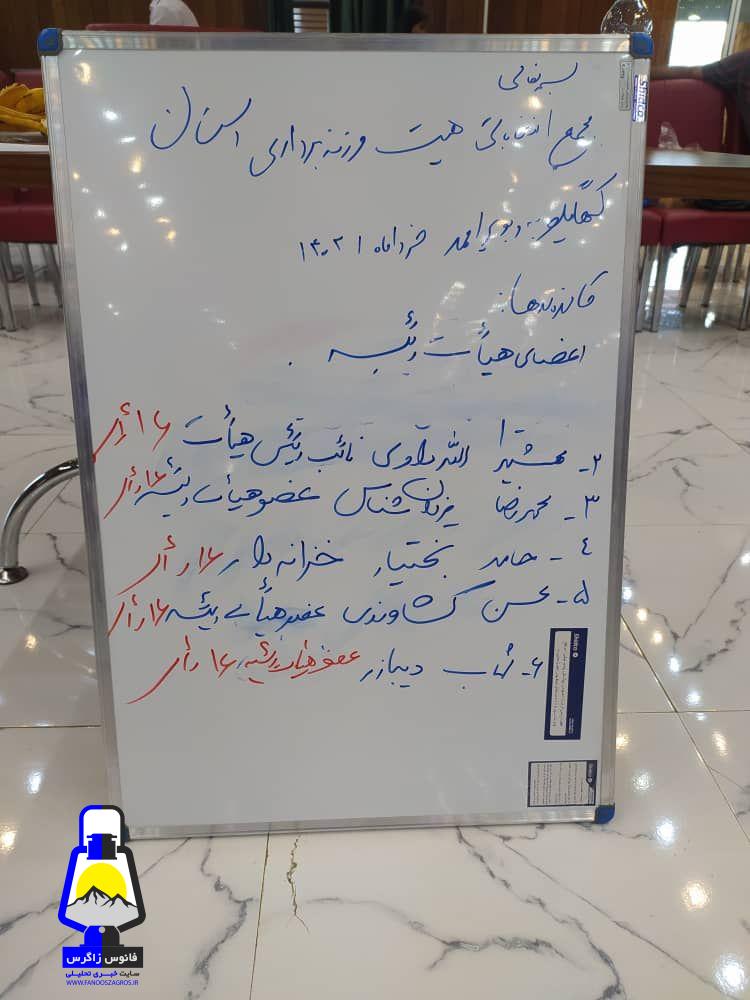 بسمه تعالی
مجمع انتخاباتی هیئت وزنه برداری استان
کهگیلویه و بویراحمد خردادماه ۱۴۰۲
کاندیدها:
اعضای هیأت رئیسه
۲- الله داوی نائب رئیس هیأت ۱۶ رأی
۳- محمدرضا یزدان شناس عضو هیأت رئیسه ۱۶ رأی
٤- حامد بختیار خزانه دار ۱۶ رأی
۵- محسن کشاورزی عضو هیأت رئیسه ۱۶ رأی
۶- دیبازر عضو هیأت رئیسه ۱۶ رأی
Shidco
Shidco
فانوس زاگرس
سایت خبری تحلیلی
WWW.FANOOSZAGROS.IR